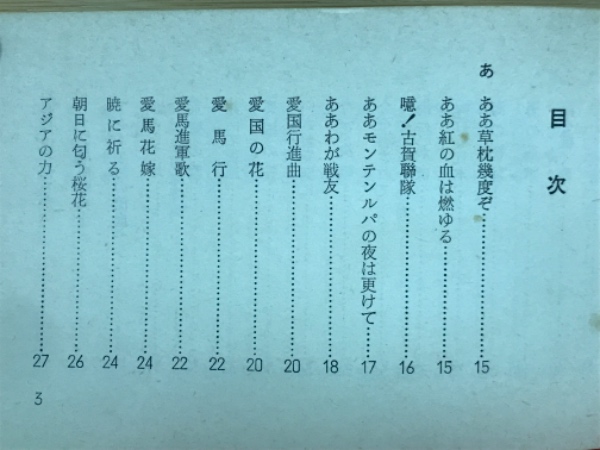 目次
あ
ああ草枕幾度ぞ……15
ああ紅の血は燃ゆる……15
噫!古賀聯隊……16
ああモンテンルパの夜は更けて……17
ああわが戦友……18
愛国行進曲……20
愛国の花……20
愛馬行……22
愛馬進軍歌……22
愛馬花嫁……24
暁に祈る……24
朝日に匂う桜花……26
アジアの力……27
3